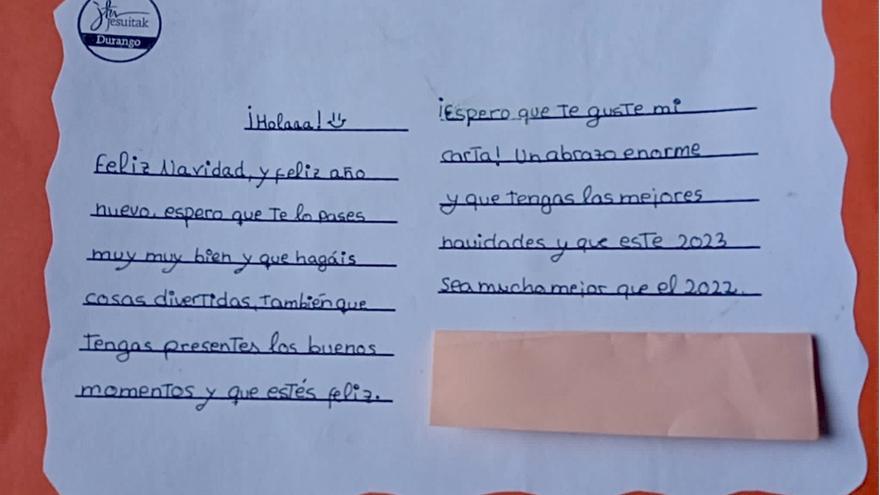 jesuitak
Durango
¡Holaaa!
Feliz Navidad, y feliz año
nuevo, espero que te lo pases
muy muy bien y que hagáis
cosas divertidas, también que
tengas presentes los buenos
momentos y que estés feliz.
¡Espero que te guste mi
carta! Un abrazo enorme
y que tengas las mejores
navidades y que este 2023
sea mucha mejor que el 2022.